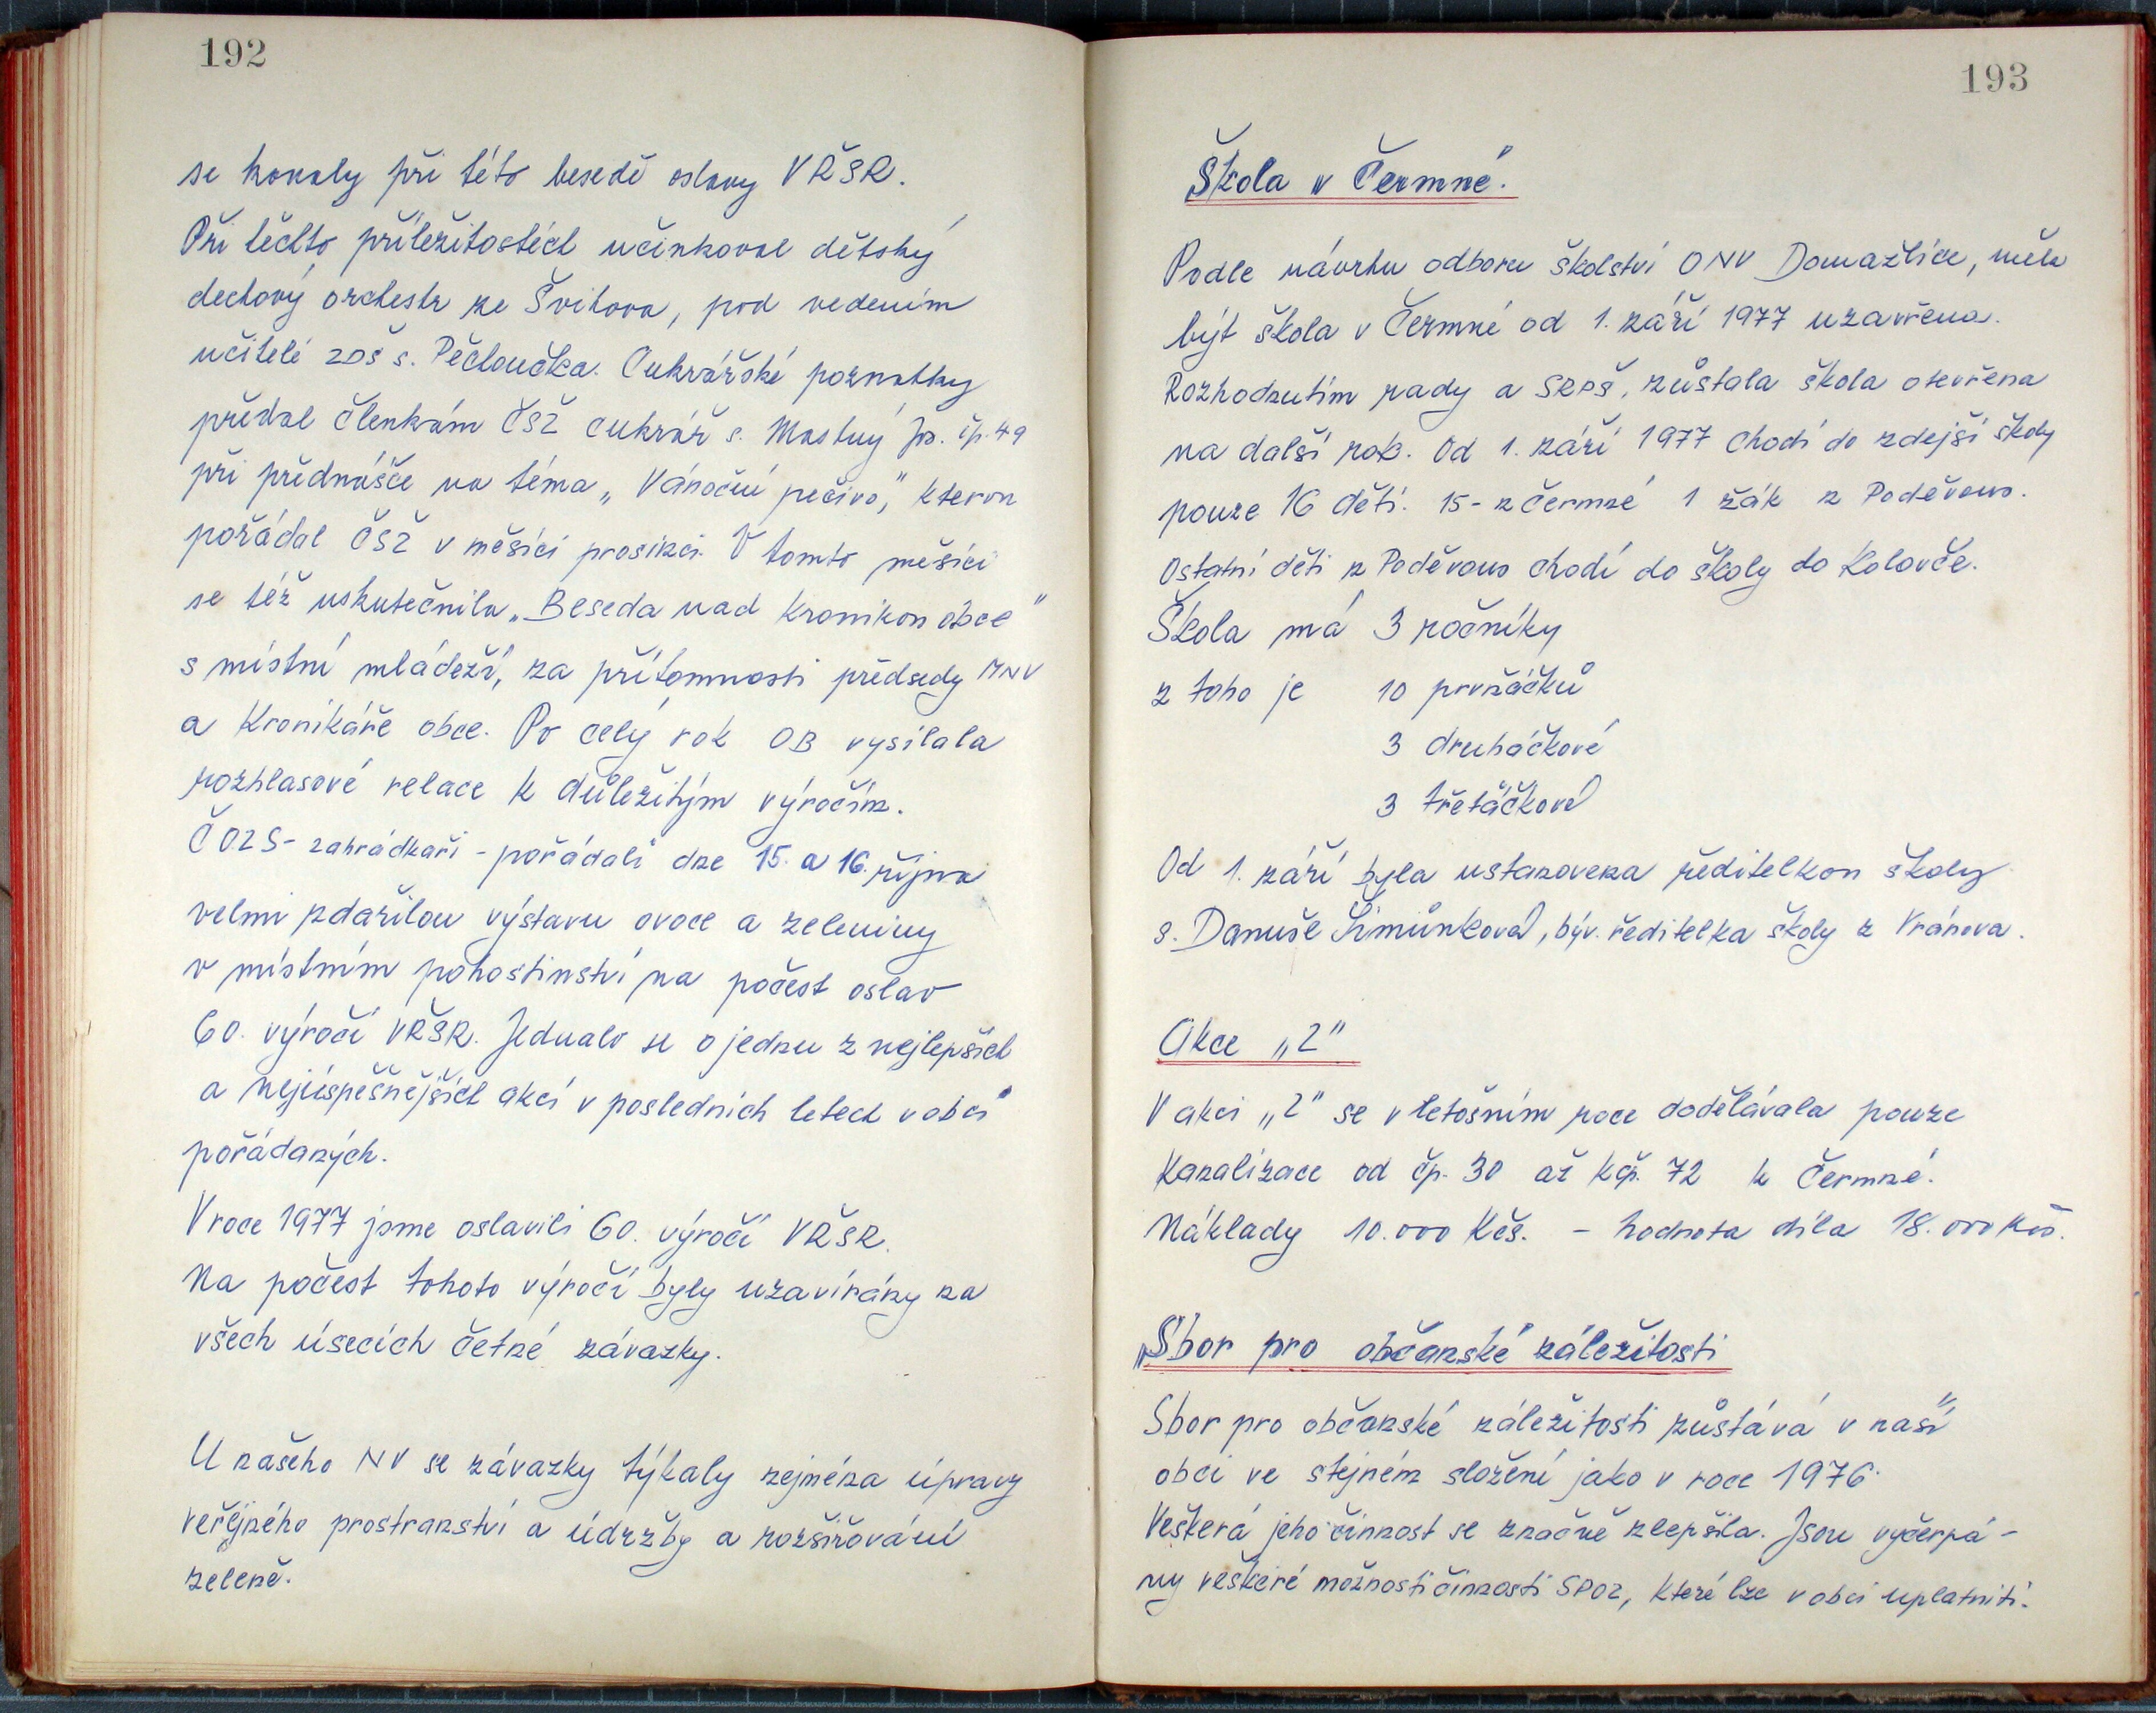 192
se konaly při této besedě oslavy VŘSR.
Při těchto příležitostech učinkoval dětský
dechový orchestr ze Švihova, pod vedením
učitelé ZDŠ s. Pěchoučka. Cukrářské poznatky
předal členkám ČSŽ cukrář s. Mastný čp. 49
při přednášce na téma „Vánoční pečivo", kterou
pořádal ČSŽ v měsíci prosinci. V tomto měsíci
se též uskutečnila „Beseda nad kronikou obce"
s místní mládeží, za přítomnosti předsedy MNV
a kronikáře obce. Po celý rok OB vysílala
rozhlasové relace k důležitým výročím.
ČOZS - zahrádkaři - pořádali dne 15. a 16. října
velmi zdařilou výstavu ovoce a zeleniny
v místním pohostinství na počest oslav
60. výročí VŘSR. Jednalo se o jednu z nejlepších
a nejúspěšnějších akcí v posledních letech v obci
pořádaných.
V roce 1977 jsme oslavili 60. výročí VŘSR.
Na počest tohoto výročí byly uzavírány na
všech úsecích četné závazky.
U našeho NV se závazky týkaly zejména úpravy
veřejného prostranství a údržby a rozšiřování
zeleně.
193
Škola v Čermné.
Podle návrhu odboru školství ONV Domažlice, měla
být škola v Čermné od 1. září 1977 uzavřena.
Rozhodnutím rady a SRPŠ, zůstala škola otevřena
na další rok. Od 1. září 1977 chodí do zdejší školy
pouze 16 dětí. 15 - z Čermné 1 žák z Poděvous.
Ostatní děti z Poděvous chodí do školy do Koloveče.
Škola má 3 ročníky
z toho je 10 prvňáčků
3 druháčkové
3 třeťáčkové
Od 1. září byla ustanovena ředitelkou školy
s. Danuše Šimůnková, býv. ředitelka školy z Vránova.
Akce „Z"
V akci „Z" se v letošním roce dodělávala pouze
kanalizace od čp. 30 až k čp. 72 k Čermné.
Náklady 10.000 Kčs. - hodnota díla 18.000 Kčs.
„Sbor pro občanské záležitosti
Sbor pro občanské záležitosti zůstává v naší
obci ve stejném složení jako v roce 1976.
Veškerá jeho činnost se značně zlepšila. Jsou vyčerpá-
ny veškeré možnosti činnosti SPOZ, které lze v obci uplatniti.